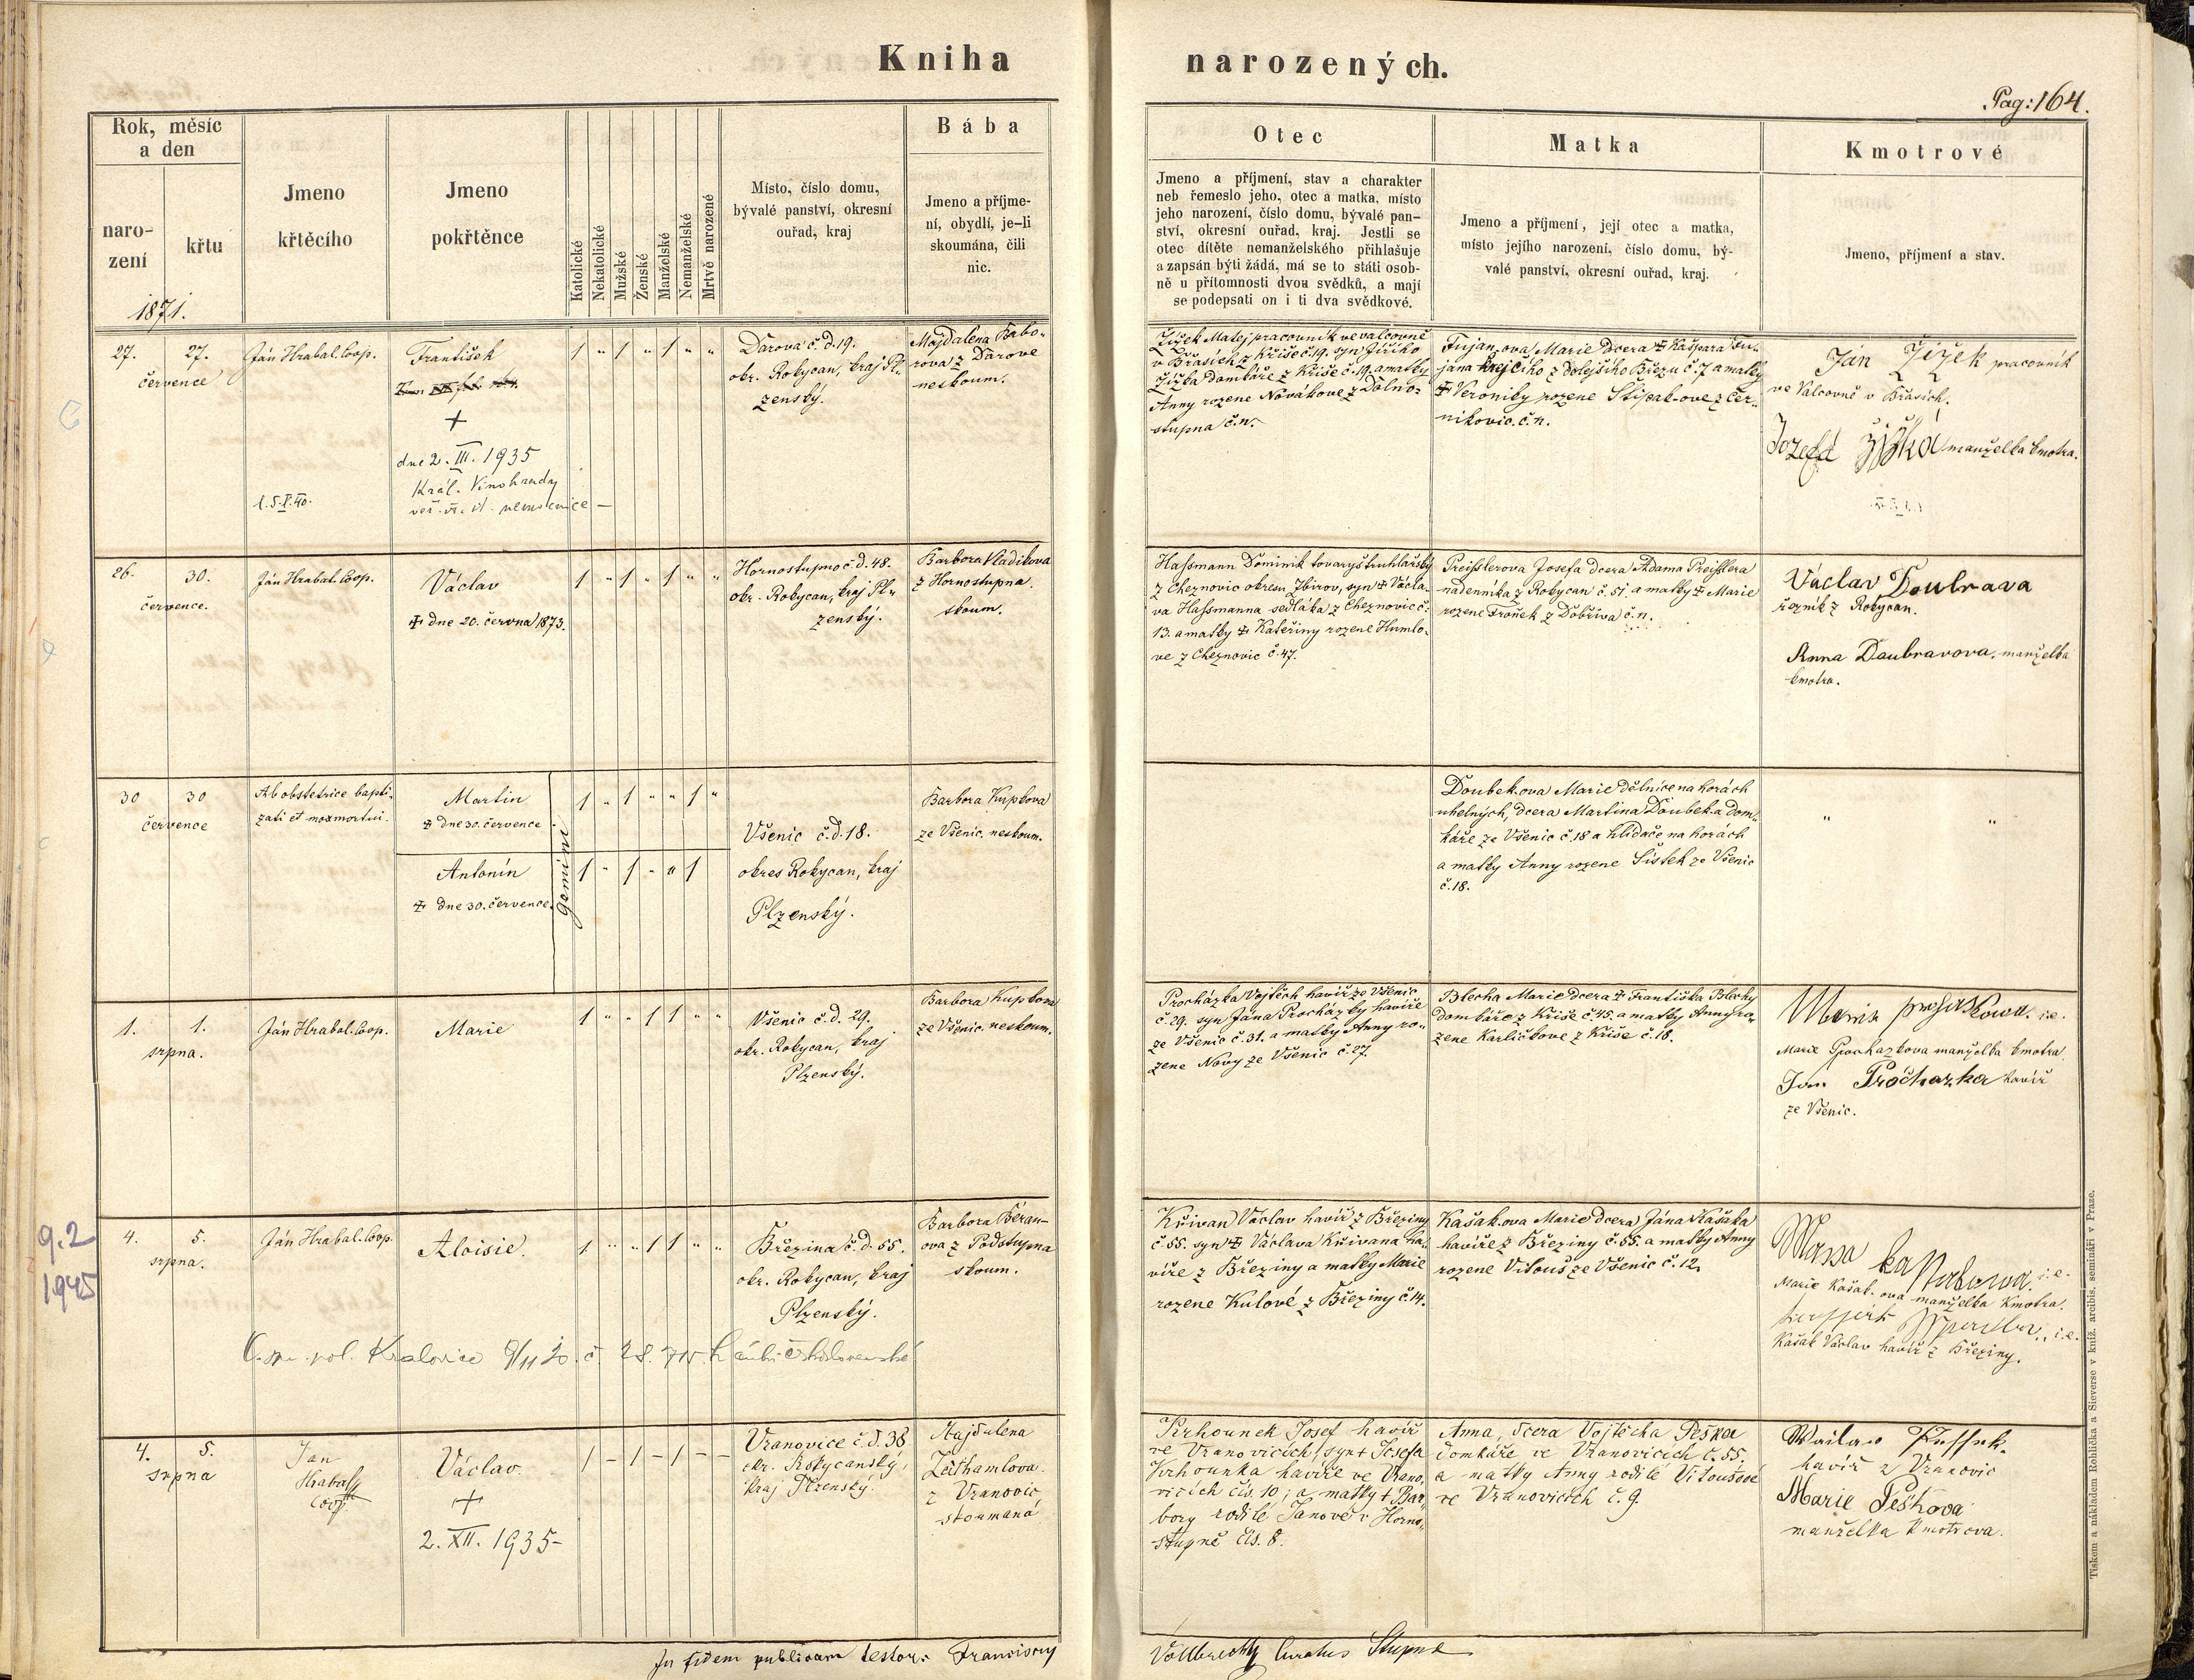 Kniha narozených.
Pag: 164.
Rok, měsíc
a den
naro-
zení
křtu
1871.
Jmeno
křtěcího
Jmeno
pokřtěnce
Katolické
Nekatolické
Mužské
Ženské
Manželské
Nemanželské
Mrtvě narozené
Místo, číslo domu,
bývalé panství, okresní
ouřad, kraj
Bába
Jmeno a příjme-
ní, obydlí, je-li
skoumána, čili
nic.
Otec
Jmeno a příjmení, stav a charakter
neb řemeslo jeho, otec a matka, místo
jeho narození, číslo domu, bývalé pan-
ství, okresní ouřad, kraj. Jestli se
otec dítěte nemanželského přihlašuje
a zapsán býti žádá, má se to státi osob-
ně u přítomnosti dvou svědků, a mají
se podepsati on i ti dva svědkové.
Matka
Jmeno a příjmení, její otec a matka,
místo jejího narození, číslo domu, bý-
valé panství, okresní ouřad, kraj.
Kmotrové
Jmeno, příjmení a stav.
27. 27.
července
Ján Hrabal. Coop.
František
+
dne 2. III. 1935
Král. Vinohrady
1 " 1 " 1 " "
Darova č.d. 19.
okr. Rokycan, kraj Pl-
zenský.
Majdalena Tabo-
rova z Darove
neskoum.
Žížek Matej pracovník ve valcovně
v Břasích z Kříše č. 19. syn Jiřího
Žížka domkáře z Kříše č. 19. a matky
Anny rozene Novákove z Dolno-
stupna č. n.
Fujan-ova Marie dcera ‡ Kašpara Fu-
jana krejčího z dolejšího Březu č. 7 a matky
‡ Veroniky rozene Štípak-ove z Čer-
nikovic. č. n.
Ján Žížek pracovník
ve Valcovně v Břasích.
Jozefa žížka manželka kmotra.
26. 30.
července.
Ján Hrabal. Coop.
Václav
‡ dne 20. června 1873.
1 " 1 " 1 " "
Hornostupno č.d. 48.
okr. Rokycan, kraj Pl-
zenský.
Barbora Vladikova
z Hornostupna.
skoum.
Hassmann Dominik tovaryš truhlářský
z Cheznovic okresu Zbirov, syn ‡ Václa-
va Hassmanna sedláka z Cheznovic č.
13. a matky ‡ Kateřiny rozene Humlo-
ve z Cheznovic č. 47.
Preisslerova Josefa dcera Adama Preisslera
nadenníka z Rokycan č. 51. a matky ‡ Marie
rozene Froněk z Dobřiva č. n.
Václav Doubrava
řezník z Rokycan.
Anna Daubravova. manželka
kmotra.
30 30
července
Ab obstetrice bapti-
zati et mox mortui.
Martin
‡ dne 30. července
Antonín
‡ dne 30. července.
gemini
1 " 1 " " 1 "
1 " 1 " " 1
Všenic č.d. 18.
okres Rokycan, kraj
Plzenský.
Barbora Kupkova
ze Všenic. neskoum.
Doubek-ova Marie dělnice na horách
uhelných, dcera Martina Doubek-a dom-
káře ze Všenic č. 18 a hlídače na horách
a matky Anny rozene Šístek ze Všenic
č. 18.
" "
1. 1.
srpna.
Ján Hrabal. Coop.
Marie
1 " " 1 1 " "
Všenic č.d. 29.
okr. Rokycan, kraj
Plzenský.
Barbora Kupkova
ze Všenic. neskoum.
Procházka Vojtěch havíř ze Všenic
č. 29. syn Jána Procházky havíře
ze Všenic č. 31. a matky Anny ro-
zene Novy ze Všenic č. 27.
Blecha Marie dcera ‡ Františka Blechy
domkáře z Kříše č. 45. a matky Anny ro-
zene Karlíčkove z Kříše č. 18.
i.e.
Marie Prochazkova manželka kmotra
Jan Prochazka havíř
ze Všenic.
9.2
1945
4. 5.
srpna.
Ján Hrabal. Coop.
Aloisie.
1 " " 1 1 " "
Březina č.d. 55.
okr. Rokycan, kraj
Plzenský.
Barbora Beran-
ova z Podstupna
skoum.
Křivan Václav havíř z Březiny
č. 55. syn ‡ Václava Křivana ha-
víře z Březiny a matky Marie
rozene Kulové z Březiny č. 14.
Kašak-ova Marie dcera Jána Kašaka
havíře z Březiny č. 55. a matky Anny
rozene Vitouš ze Všenic č. 12.
i.e.
Marie Kašak-ova manželka Kmotra.
i.e.
Kašak Václav havíř z Březiny.
Kralovice
4. 5.
srpna
Jan
Hrabal
Coop.
Václav
+
2. XII. 1935
1 – 1 – 1 – –
Vranovice č.d. 38
okr. Rokycanský,
Kraj Plzenský.
Majdalena
z Vranovic
skoumaná
Krhounek Josef havíř
ve Vranovicích, syn † Josefa
Krhounka havíře ve Vrano-
vicích čís. 10; a matky † Bar-
bory rodilé Janové v Horno-
stupně čís. 8.
Anna, dcera Vojtěcha Peška
domkáře ve Vranovicích č. 55.
a matky Anny rodilé Vitoušové
ve Vranovicích č. 9.
havíř z Vranovic
Marie Peškova
manželka kmotrova.
In fidem publicam testor. Franciscus
Vollbrecht Curatus Stupne
Tiskem a nákladem Rohlíčka a Sieverse v kníž. arcibis. semináři v Praze.